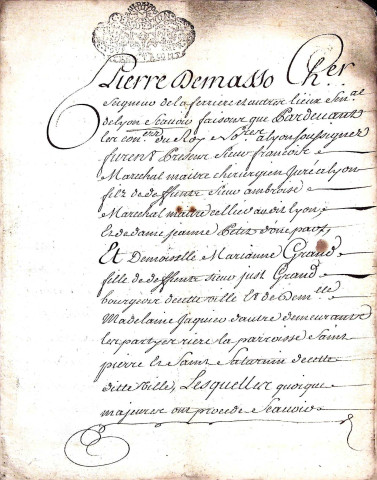 Pierre Demasso Cher
Seigneur de la ferriere et autres lieux Sen.al
de Lyon Scavoir faisons que Pardevant
les con.ers du Roy No.res a Lyon Soussignez
furent Presens Sieur francois
Marechal maitre chirurgien Juré a Lyon
fils de deffunt Sieur ambroise
Marechal maitre audit Lyon
et de dame jeanne Petit
Et Demoiselle Marianne Grand
fille de deffunt Sieur Just Grand
bourgeois de cette ville Et de Dem.lle
Madelaine d'autre demeurants
les partyes rière la parroisse Saint
pierre et Saint Saturnin de cette
ditte Ville, Lesquelles quoique
majeures ont procedé Scavoir